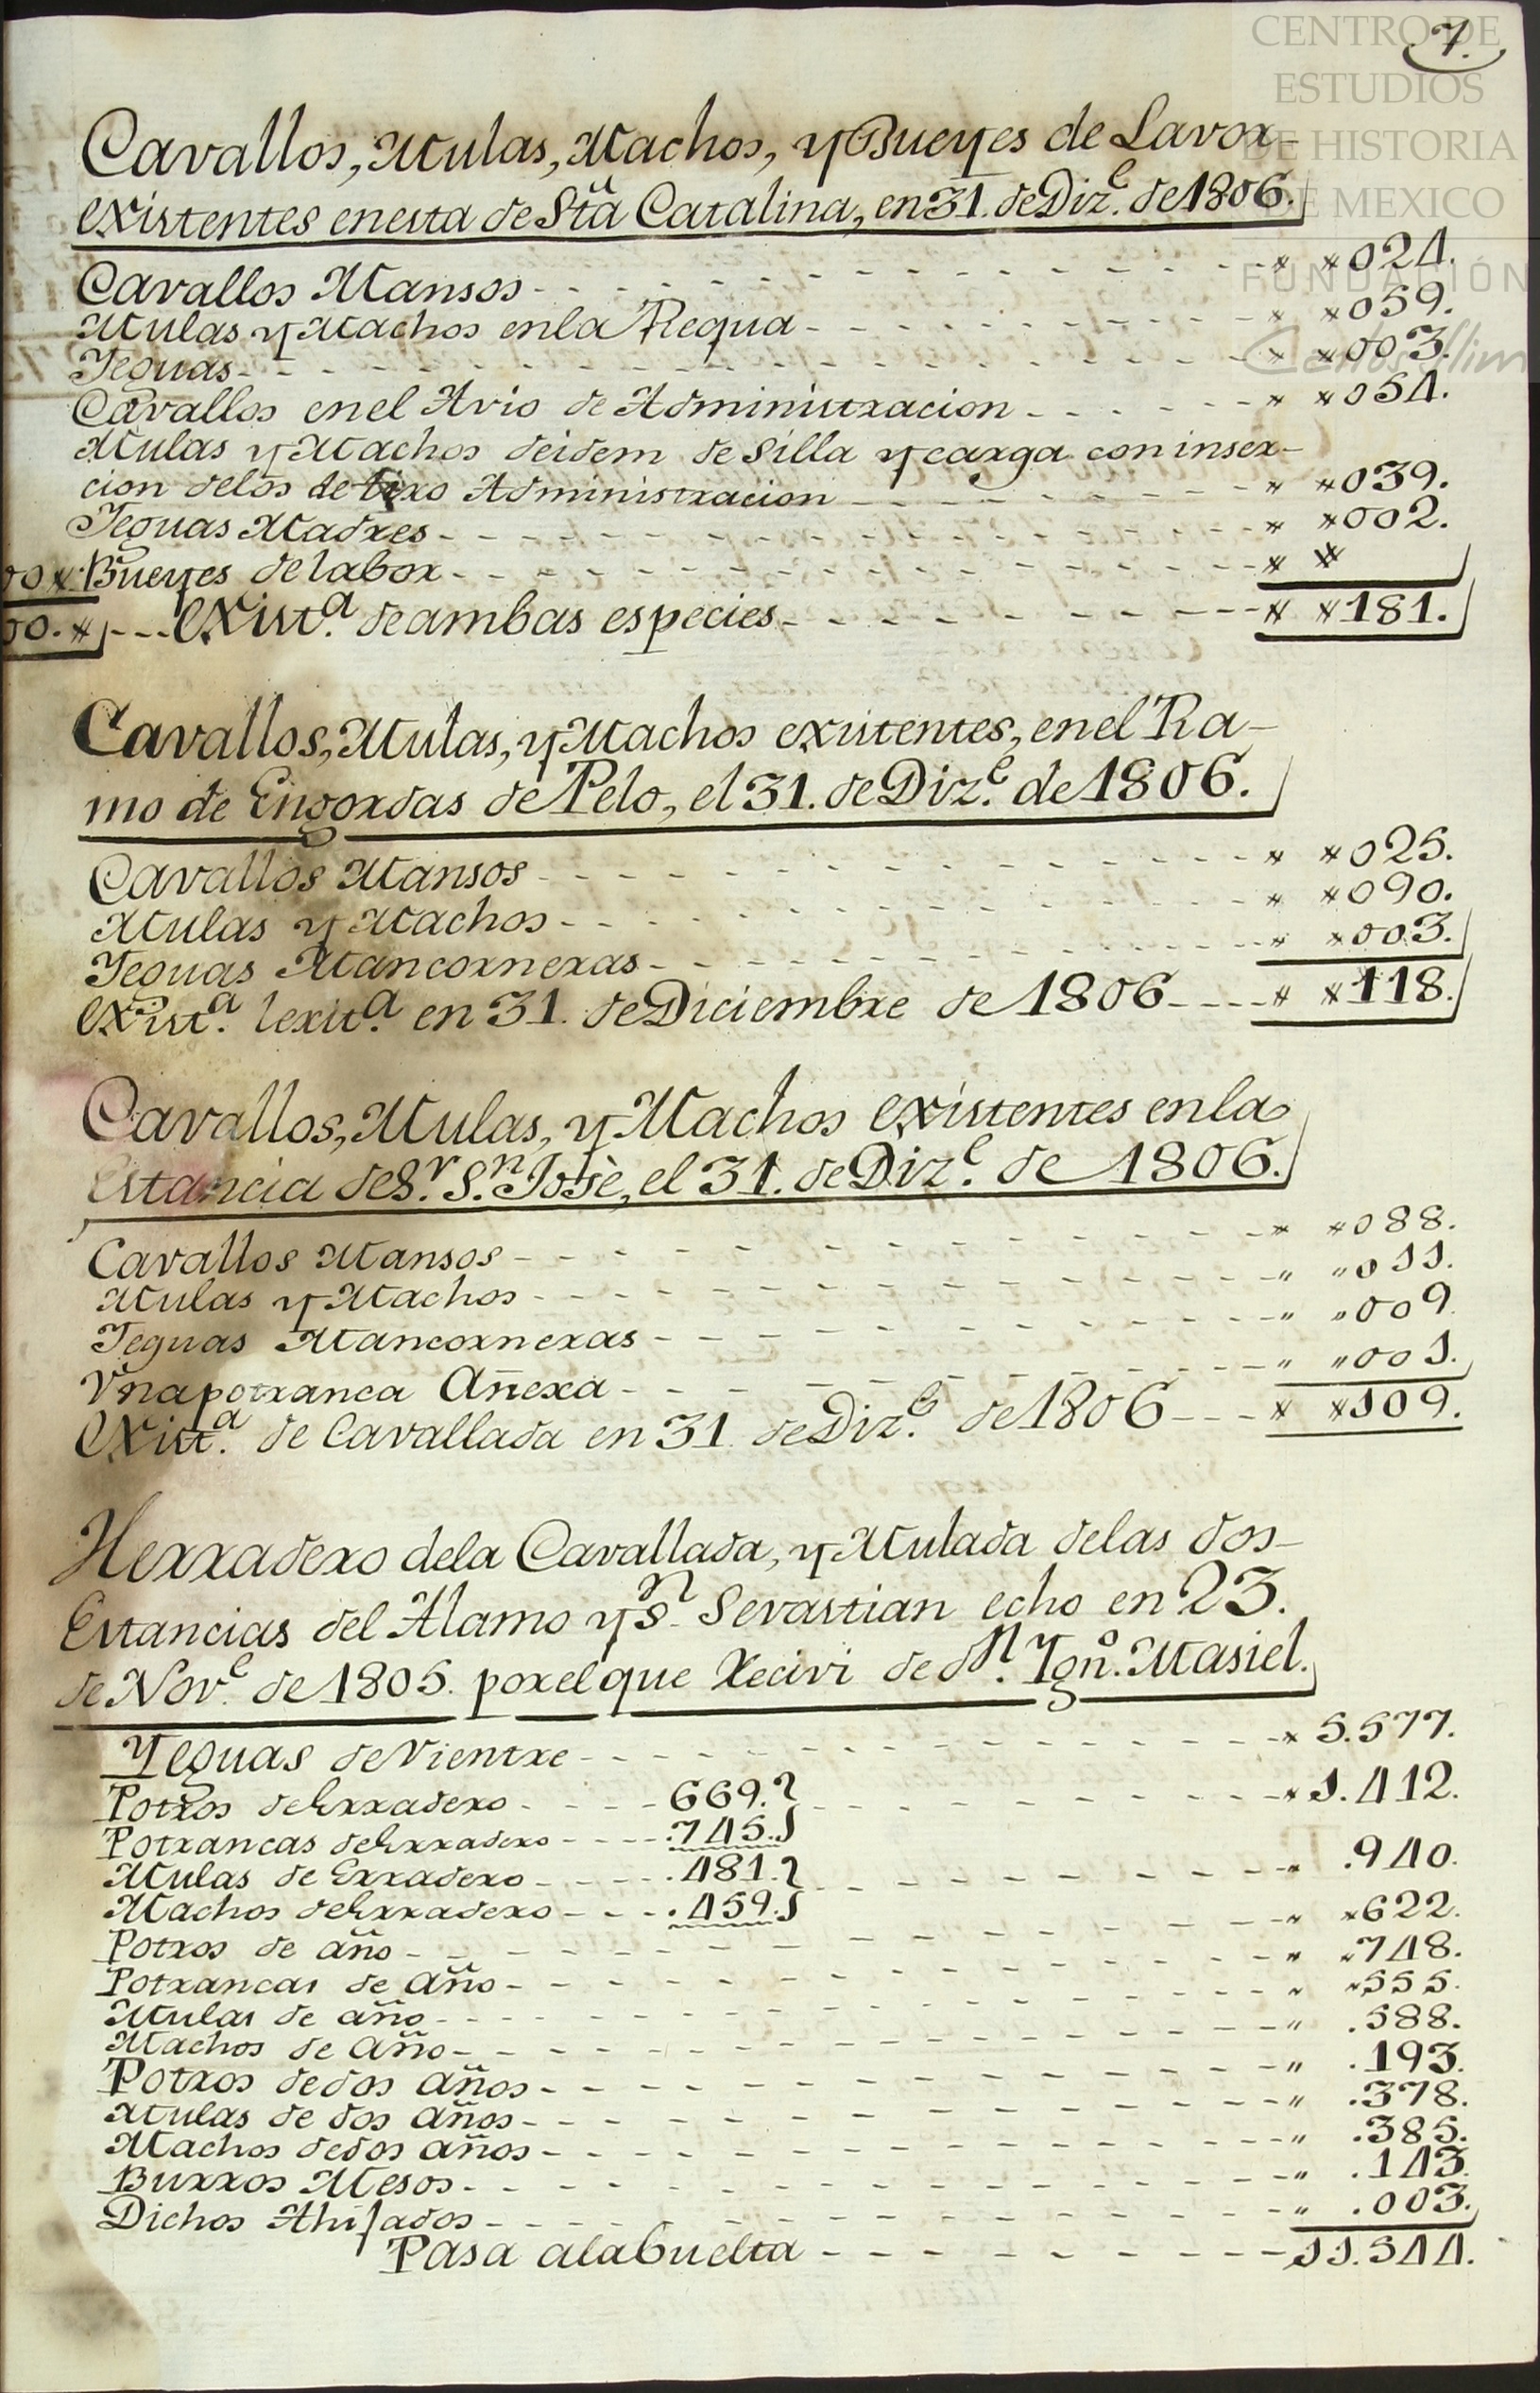 7.
CENTRO DE
ESTUDIOS
DE HISTORIA
DE MEXICO
FUNDACIÓN
Carlos Slim
Cavallos, Mulas, Machos, y Bueyes de Lavor
existentes en esta de Sta Catalina, en 31. de Diz.e de 1806.
Cavallos Mansos - - - " "024.
Mulas y Machos en la Requa - - - " "059.
Yeguas - - - " "003.
Cavallos en el Avio de Administracion - - - " "054.
Mulas y Machos de idem de Silla y carga con inser-
cion de los de tiro Administracion - - - " "039.
Yeguas Madres - - - " "002.
00" Bueyes de labor - - - " "
00. " - - - Exist.a de ambas especies - - - " "181.
Cavallos, Mulas, y Machos existentes, en el Ra-
mo de Engordas de Pelo, el 31. de Diz.e de 1806.
Cavallos Mansos - - - " "025.
Mulas y Machos - - - " "090.
Yeguas Mancorneras - - - " "003.
Exist.a lexit.a en 31. de Diciembre de 1806 - - - " "118.
Cavallos, Mulas, y Machos existentes en la
Estancia de S.r S.n Josè, el 31. de Diz.e de 1806.
Cavallos Mansos - - - " "088.
Mulas y Machos - - - " "011.
Yeguas Mancorneras - - - " "009.
Vna potranca Añexa - - - " "001.
Exist.a de Cavallada en 31. de Diz.e de 1806 - - - " "109.
Herradero de la Cavallada, y Mulada de las dos
Estancias del Alamo y S.n Sevastian echo en 23.
de Nov.e de 1805. por el que Recivi de D.n Ygn.o Masiel.
Yeguas de Vientre - - - " 5.577.
Potros de Erradero - - - 669. - - - " 1.412.
Potrancas de Erradero - - - .743.
Mulas de Erradero - - - .481. - - - " .940.
Machos de Erradero - - - .459.
Potros de año - - - " "622.
Potrancas de año - - - " "748.
Mulas de año - - - " "555.
Machos de Año - - - " .588.
Potros de dos años - - - " .193.
Mulas de dos años - - - " .378.
Machos de dos años - - - " .385.
Burros Mesos - - - " .143.
Dichos Ahijados - - - " .003.
Pasa ala buelta - - - 11.544.